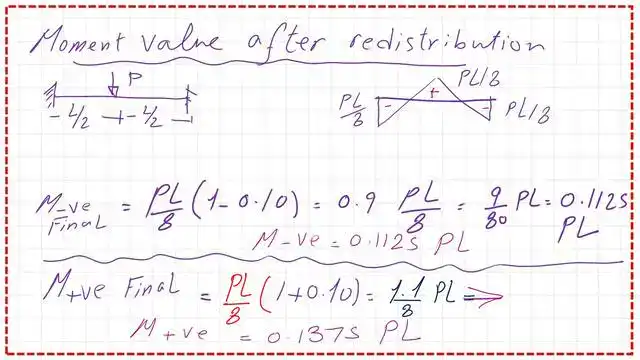 Moment value after redistribution
P
L/2 L/2
PL/8
PL/8 + PL/8
- -
M-ve Final = PL/8 (1-0.10) = 0.9 PL/8 = 9/80 PL = 0.1125 PL
M-ve = 0.1125 PL
M+ve Final = PL/8 (1+0.10) = 1.1/8 PL =>
M+ve = 0.1375 PL